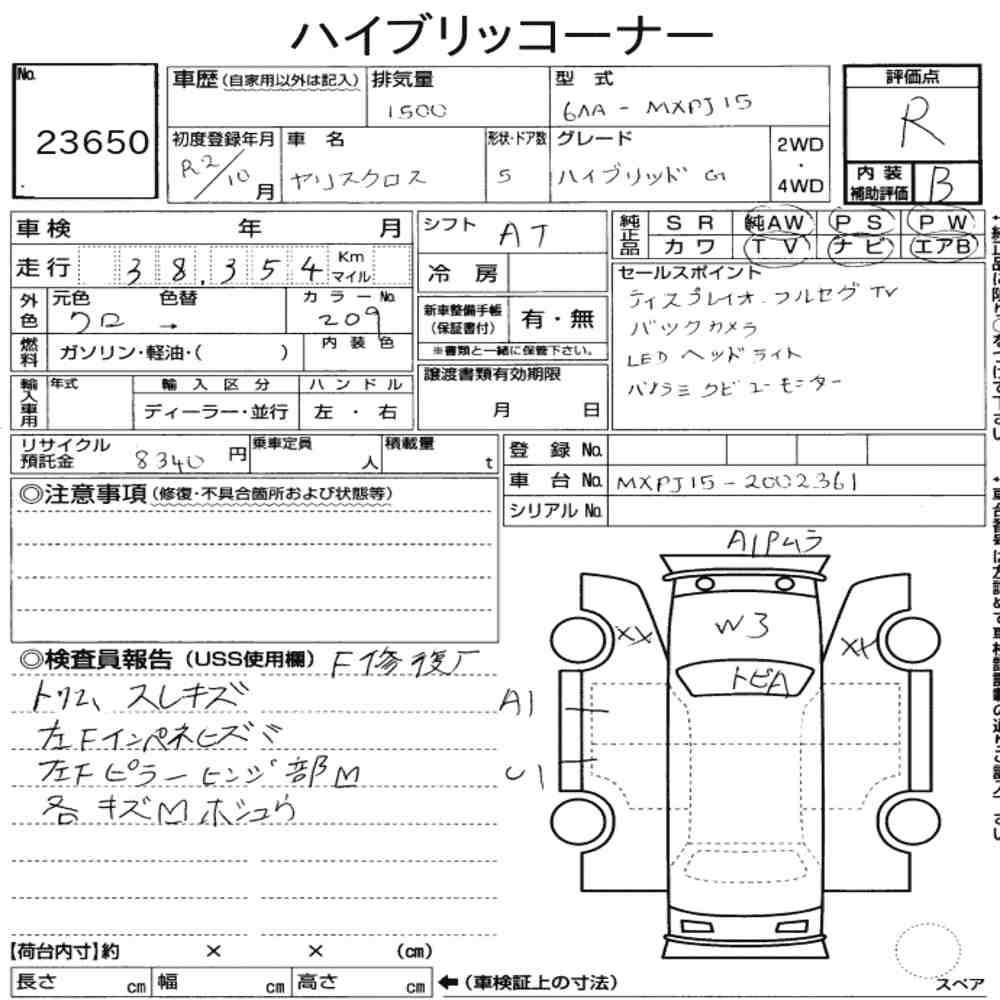 ハイブリッコーナー
No.
23650
車歴(自家用以外は記入)
排気量
1500
型式
6AA - MXPJ15
評価点
R
初度登録年月
R2/10月
車名
ヤリスクロス
形状・ドア数
5
グレード
ハイブリッド G
2WD
・
4WD
内装
補助評価
B
車検 年 月
走行 38,354 Km
マイル
外色
元色 色替
クロ →
カラーNo.
209
燃料
ガソリン・軽油・( )
内装色
輸入車用
年式
輸入区分
ハンドル
ディーラー・並行
左・右
シフト
AT
冷房
新車整備手帳
(保証書付)
有・無
※書類と一緒に保管下さい。
譲渡書類有効期限
月 日
純正品
SR 純AW PS PW
カワ TV ナビ エアB
セールスポイント
ディスプレイオ.フルセグTV
バックカメラ
LED ヘッドライト
パノラミクビューモニター
リサイクル
預託金
8340 円
乗車定員
人
積載量
t
登録 No.
車台 No.
MXPJ15-2002361
シリアル No.
◎注意事項(修復・不具合箇所および状態等)
◎検査員報告(USS使用欄) F修復有
トリム スレキズ
左Fインパネヒズミ
左Fピラーヒンジ部M
各キズMホシュウ
A1Pムラ
W3
XX
XX
トビA
A1
U1
【荷台内寸】約 × × (cm)
長さ cm 幅 cm 高さ cm
←(車検証上の寸法)
スペア